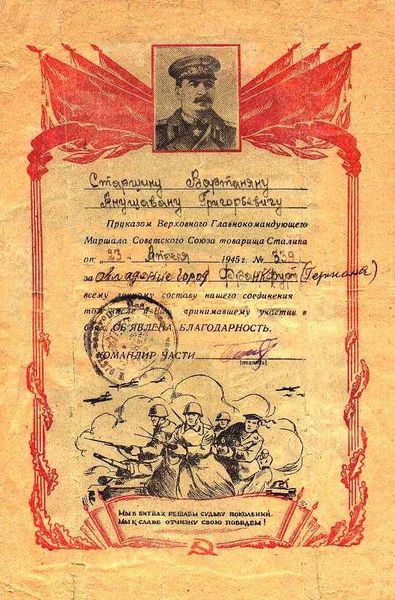 Старшину Вартаняну
Анушавану Григорьевичу
Приказом Верховного Главнокомандующего
Маршала Советского Союза товарища Сталина
от 23 Апреля 1945 г. № 339
за овладение город Франкфурт (Германия)
всему личному составу нашего соединения
том числе и принимавшему участие в
ОБ'ЯВЛЕНА БЛАГОДАРНОСТЬ.
КОМАНДИР ЧАСТИ
(подпись)
МЫ В БИТВАХ РЕШАЕМ СУДЬБУ ПОКОЛЕНИЙ.
МЫ К СЛАВЕ ОТЧИЗНУ СВОЮ ПОВЕДЕМ!